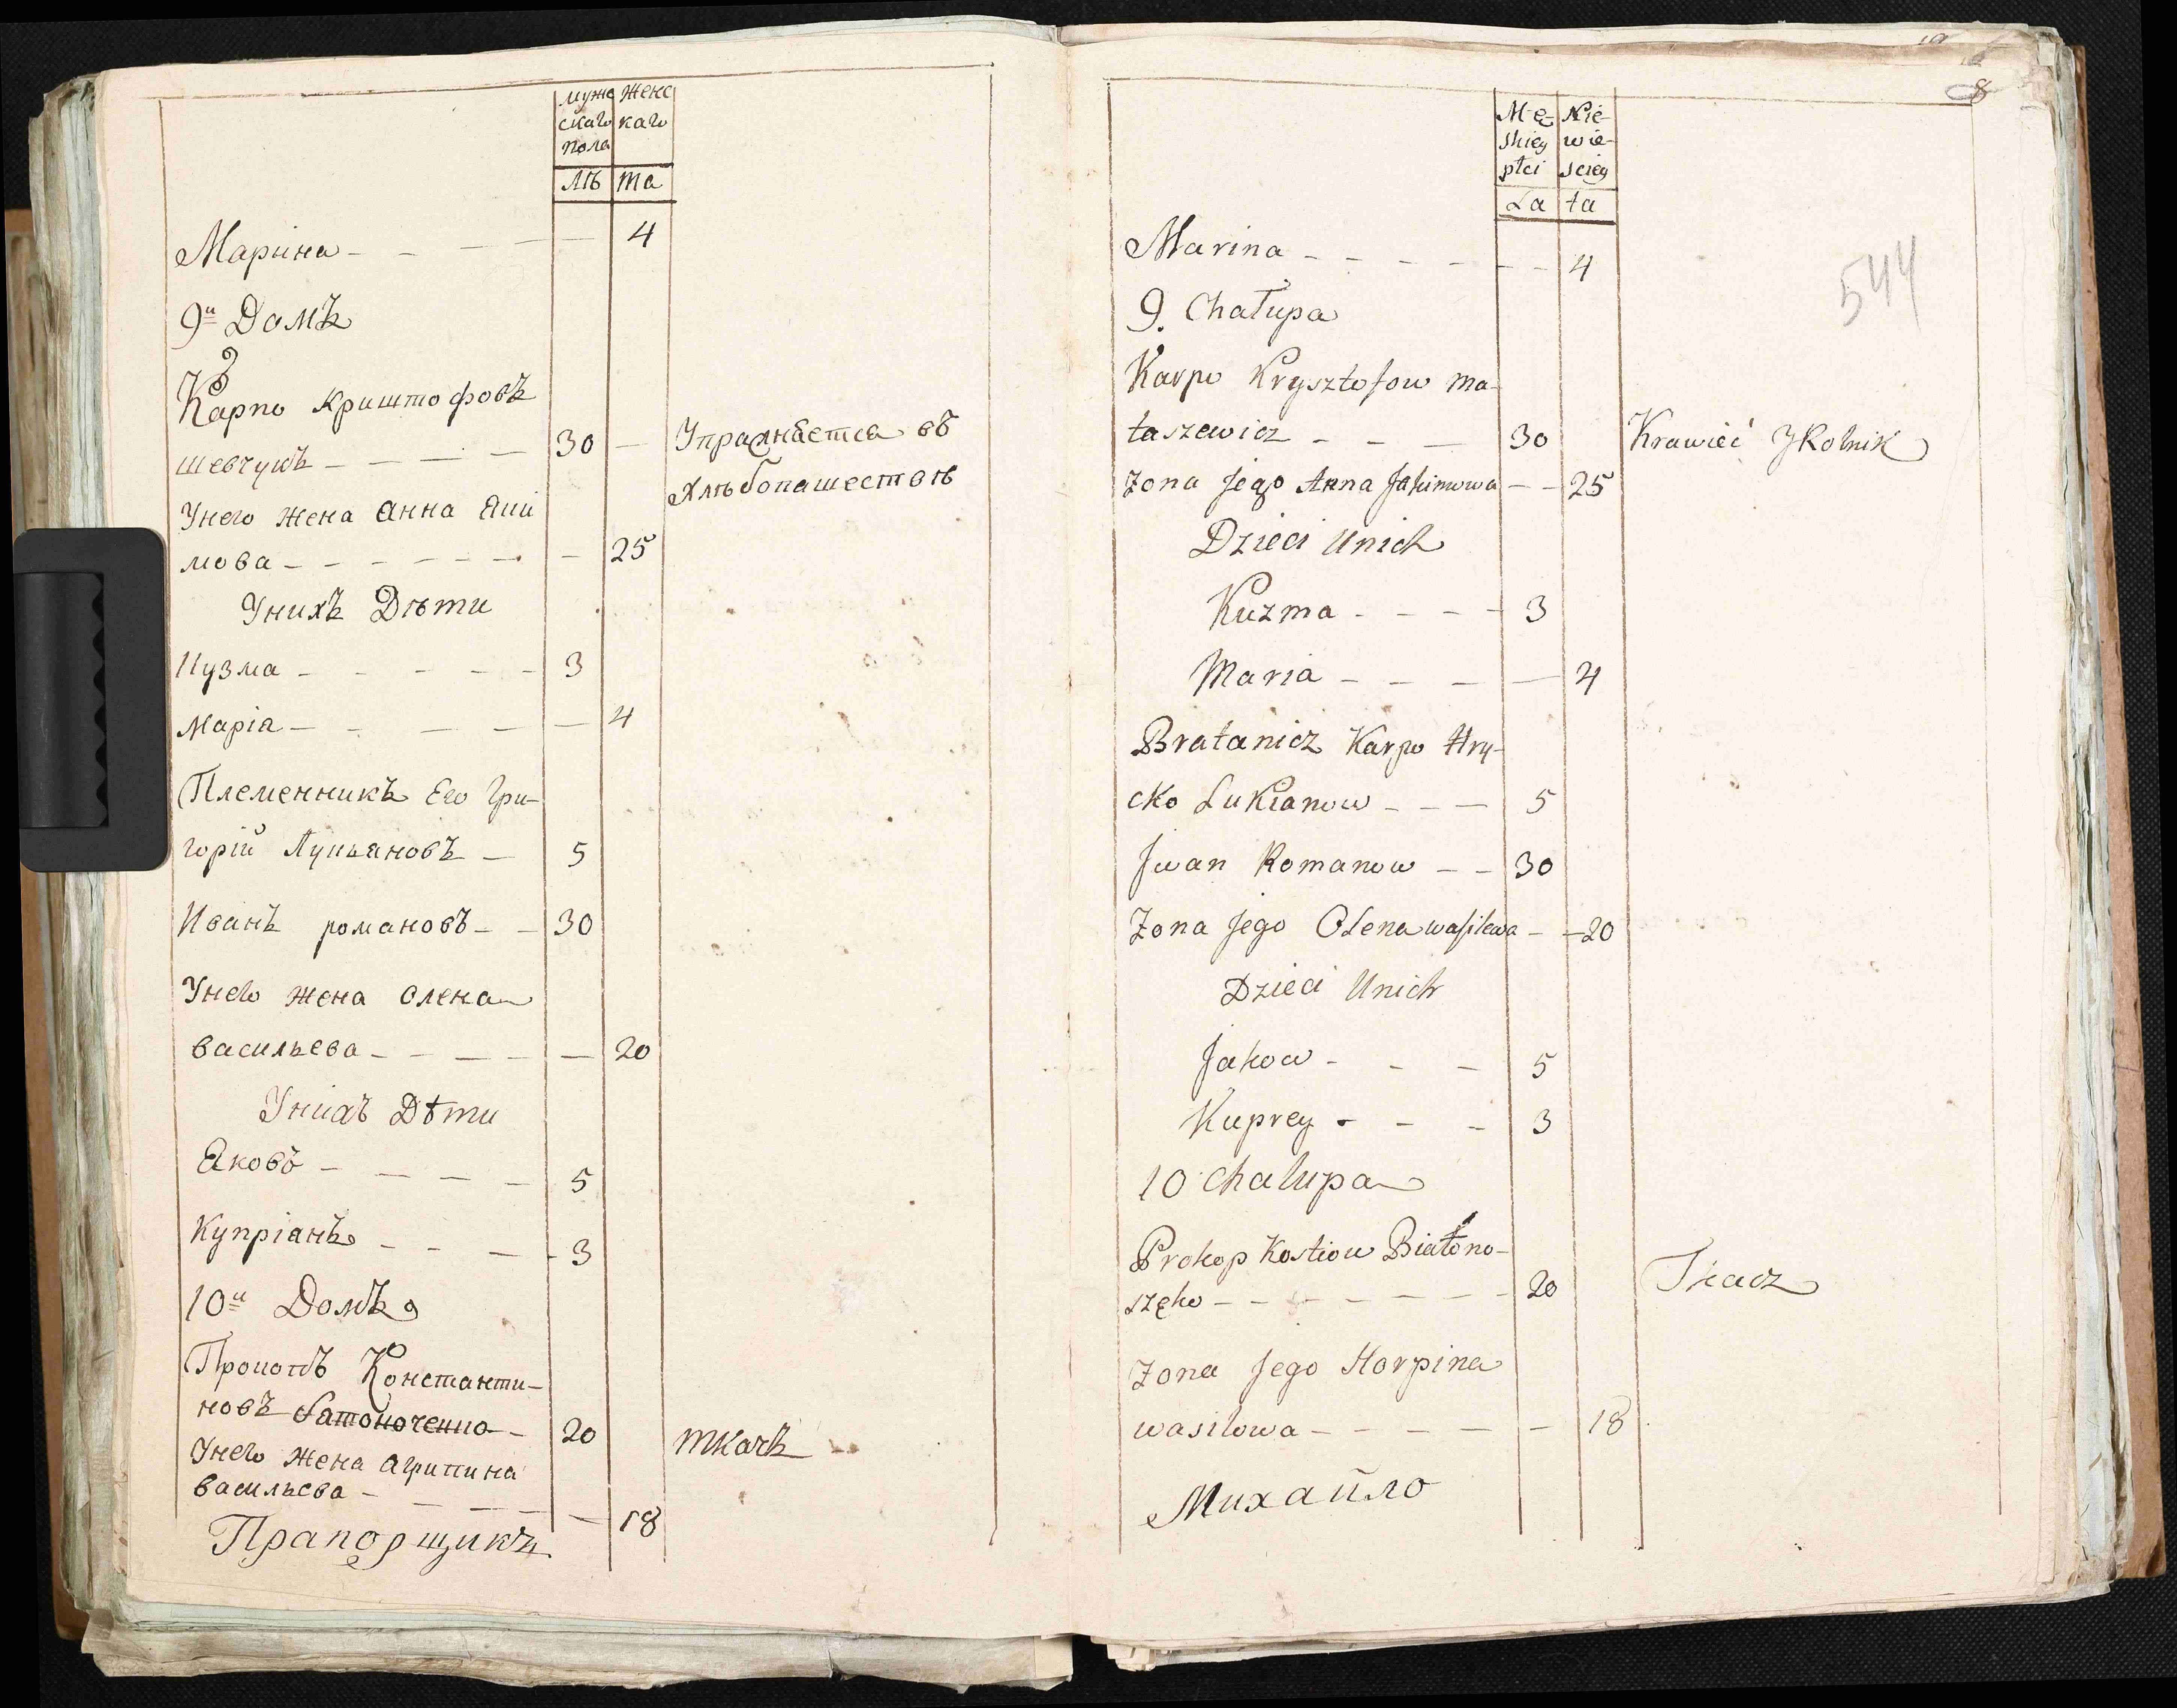 муже
скаго
пола
женс
каго
лѣ
та
Марина
4
9й Домъ
Карпо Криштофовъ
шевчукъ
30
Упражняется въ
хлѣбопашествѣ
Унего жена Анна Яки
мова
25
Унихъ Дѣти
Кузма
3
Марія
4
Племенникъ Его Гри-
горій Лукьяновъ
5
Иванъ романовъ
30
Унего жена Олена
васильева
20
Унихъ Дѣти
Яковъ
5
Купріанъ
3
10й Домъ
Прокопъ Константи-
новъ
20
ткачъ
Унего жена Агрипина
васильева
18
Прапорщикъ
8
Mę-
skiey
płci
Nie-
wie-
sciey
La
ta
Marina
4
544
9. Chałupa
Karpo Krysztofow Ma-
taszewicz
30
Krawieć Y Rolnik
Zona Jego Anna Jakimowa
25
Dzieci Unich
Kuzma
3
Maria
4
Bratanicz Karpo Hry-
cko Lukianow
5
Jwan Romanow
30
Zona Jego Olena wasilewa
20
Dzieci Unich
Jakow
5
Kuprey
3
10 chalupa
Prokop Kostiow Białono-
szęko
20
Tkacz
Zona Jego Horpina
wasilowa
18
Михайло